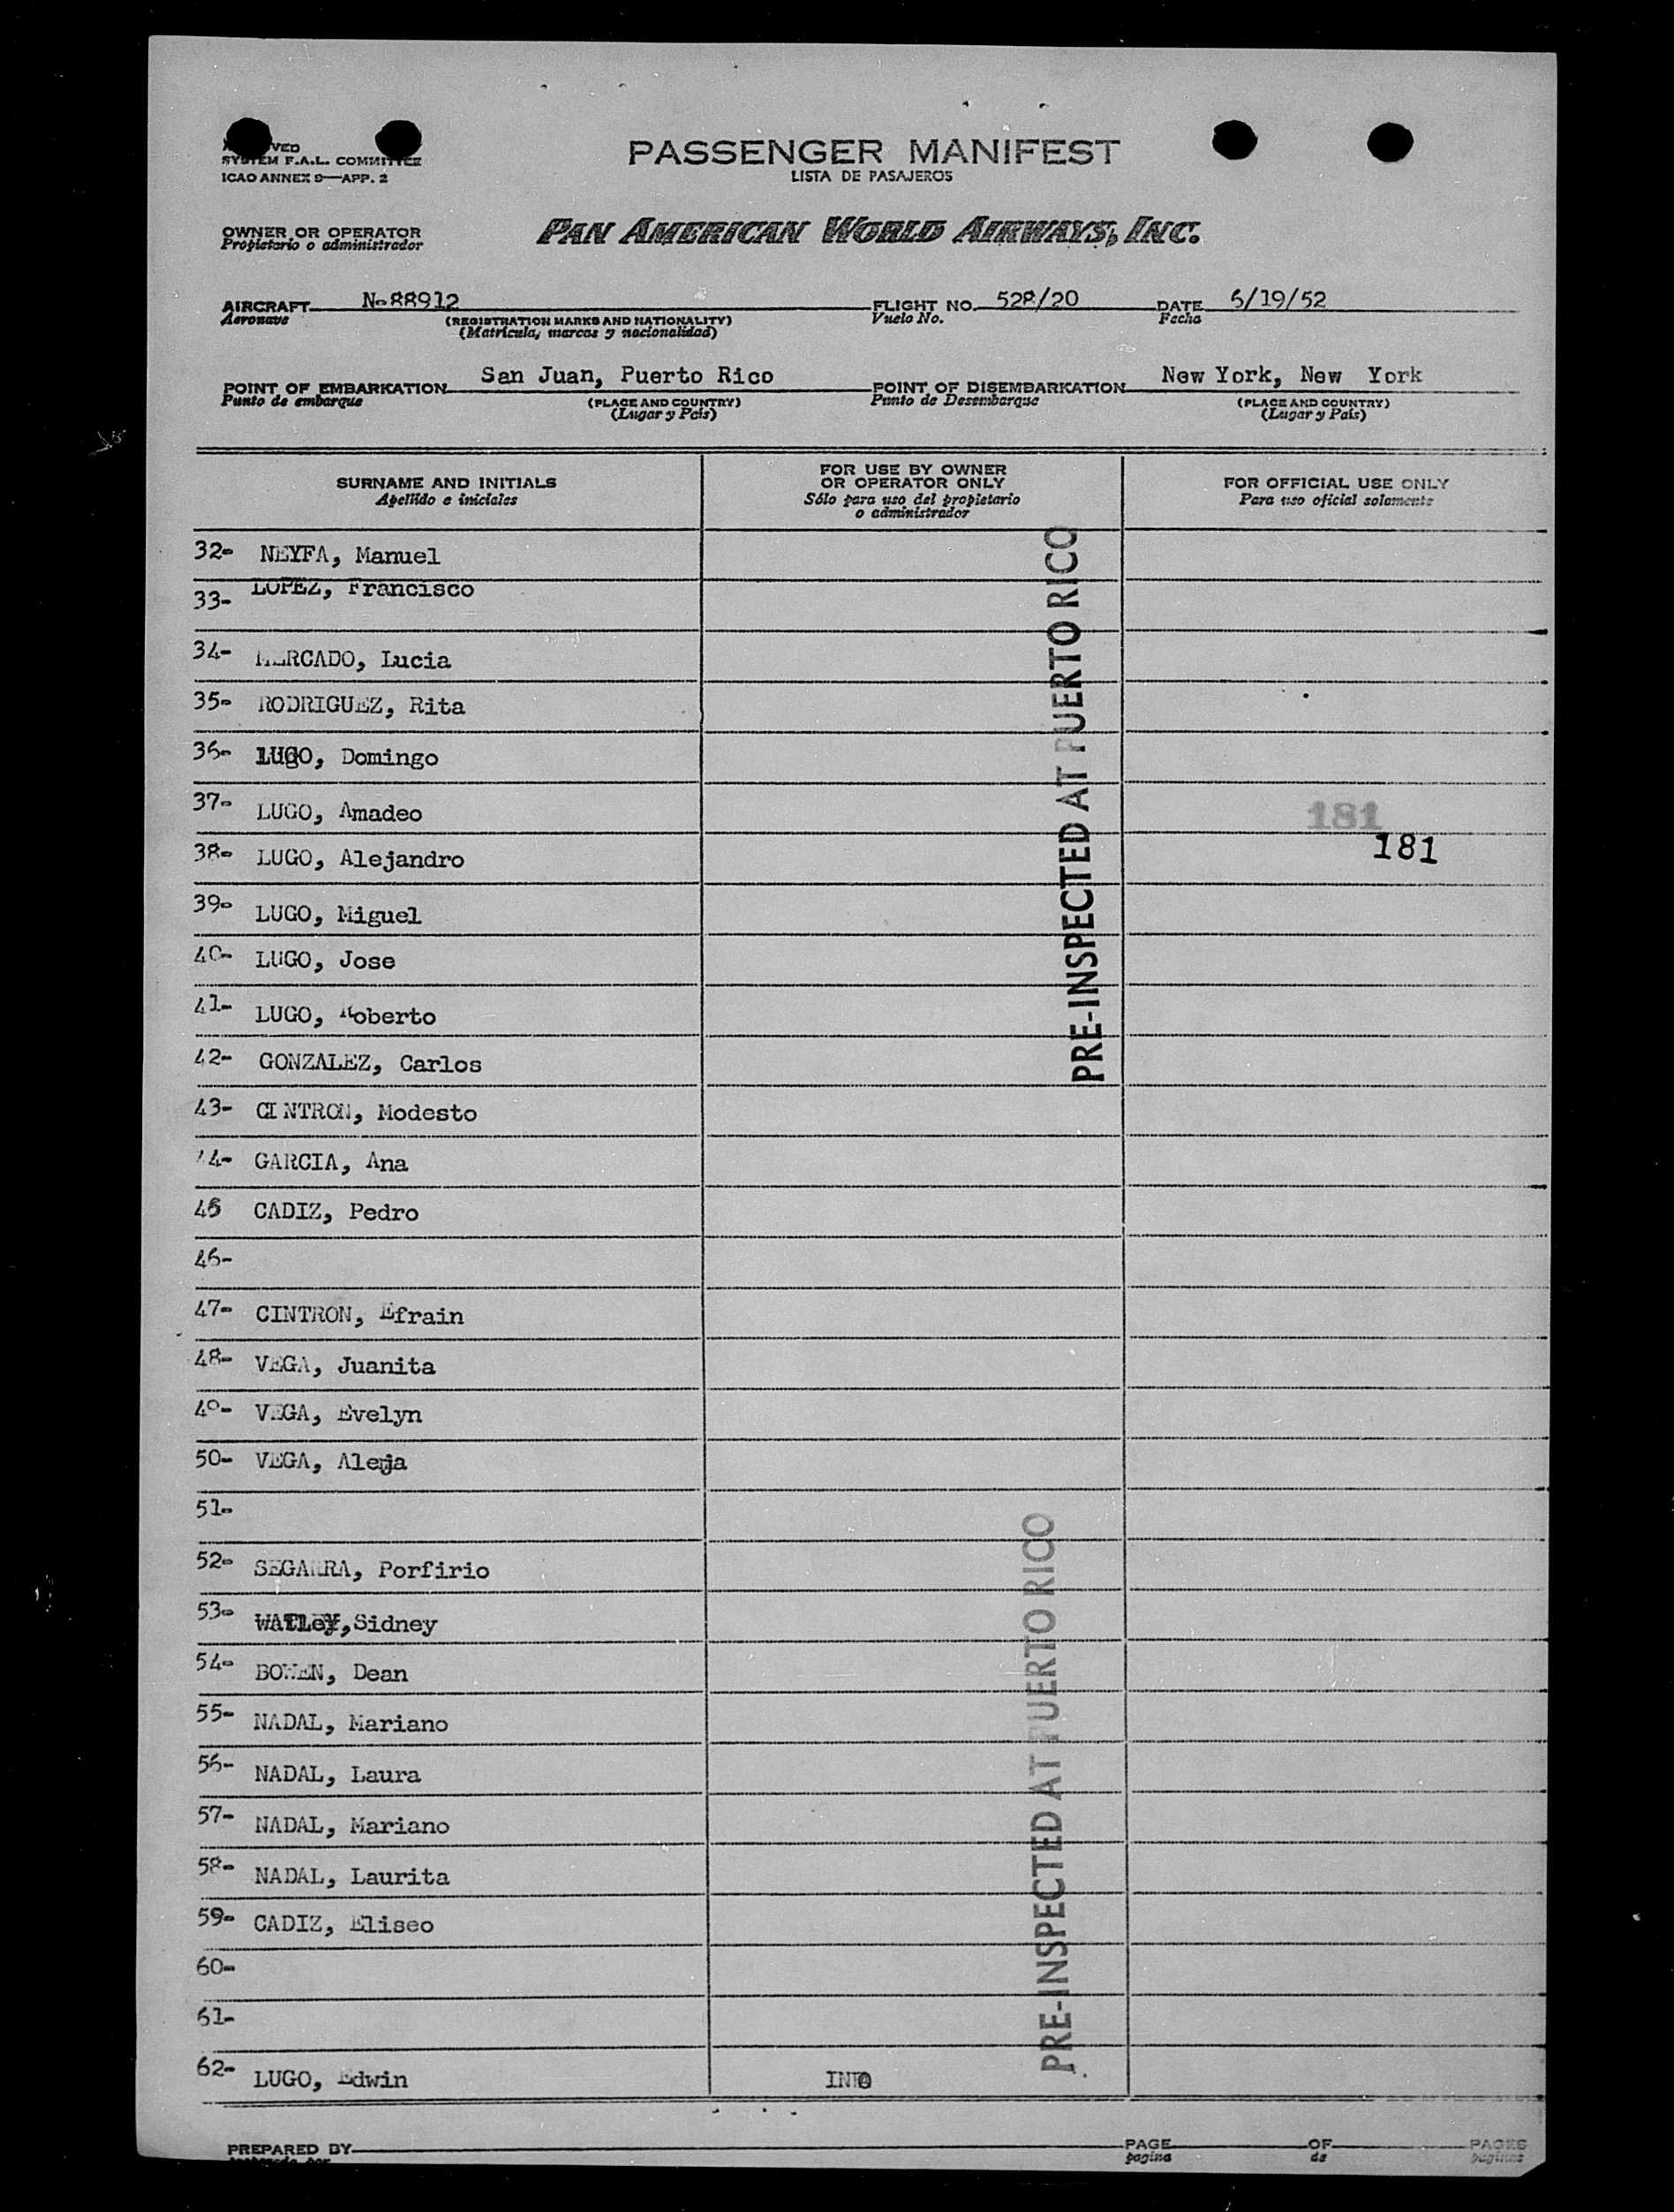 SYSTEM F.A.L. COMMITTEE
ICAO ANNEX 9—APP. 2
PASSENGER MANIFEST
LISTA DE PASAJEROS
OWNER OR OPERATOR
Propietario o administrador
PAN AMERICAN WORLD AIRWAYS, INC.
AIRCRAFT N-88912 FLIGHT NO. 528/20 DATE 6/19/52
Aeronave (REGISTRATION MARKS AND NATIONALITY) Vuelo No. Fecha
(Matrícula, marcas y nacionalidad)
POINT OF EMBARKATION San Juan, Puerto Rico POINT OF DISEMBARKATION New York, New York
Punto de embarque (PLACE AND COUNTRY) Punto de Desembarque (PLACE AND COUNTRY)
(Lugar y País) (Lugar y País)
SURNAME AND INITIALS
Apellido e iniciales
FOR USE BY OWNER
OR OPERATOR ONLY
Sólo para uso del propietario
o administrador
FOR OFFICIAL USE ONLY
Para uso oficial solamente
32- NEYFA, Manuel
33- LOPEZ, Francisco
34- MERCADO, Lucia
35- RODRIGUEZ, Rita
36- LUGO, Domingo
37- LUGO, Amadeo
181
38- LUGO, Alejandro
181
39- LUGO, Miguel
40- LUGO, Jose
41- LUGO, Roberto
42- GONZALEZ, Carlos
43- CINTRON, Modesto
44- GARCIA, Ana
45 CADIZ, Pedro
46-
47- CINTRON, Efrain
48- VEGA, Juanita
49- VEGA, Evelyn
50- VEGA, Aleja
51-
52- SEGARRA, Porfirio
53- WATLEY, Sidney
54- BOWEN, Dean
55- NADAL, Mariano
56- NADAL, Laura
57- NADAL, Mariano
58- NADAL, Laurita
59- CADIZ, Eliseo
60-
61-
62- LUGO, Edwin
PRE-INSPECTED AT PUERTO RICO
PRE-INSPECTED AT PUERTO RICO
PREPARED BY PAGE OF PAGES
pagina de paginas